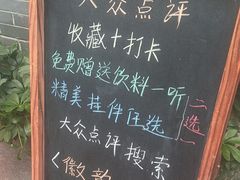 大众点评
收藏+打卡
免费赠送饮料一听
精美挂件任选
二选一
大众点评搜索
《徽韵